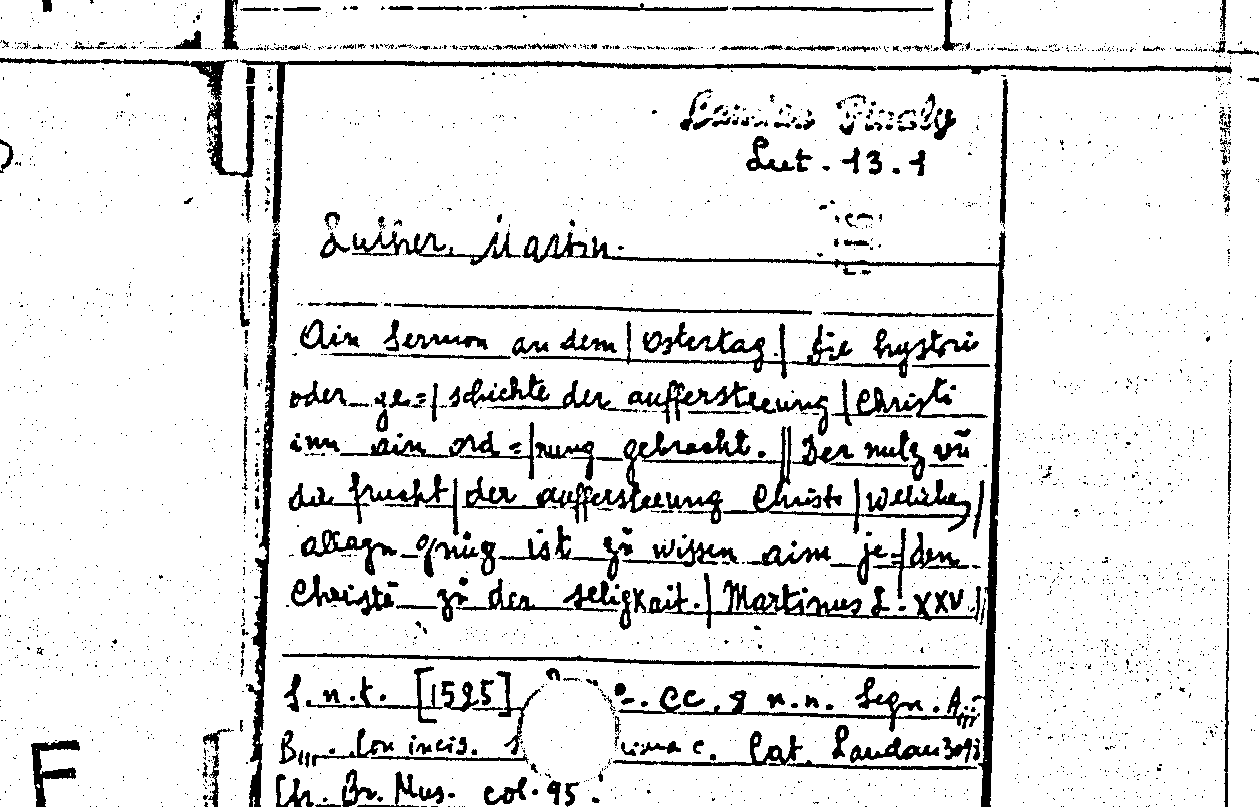 Landau Finaly
Lut. 13.1
Luther, Martin.
Ain Sermon an dem | Ostertag | die hystori
oder ge= | schichte der auffersteeung | Christi
inn ain ord = | nung gebracht. || Der nutz vñ
die frucht | der auffersteeung Christi | Weliche |
allayn gnůg ist zů wissen aim je= | den
Christē zů der seligkait. | Martinus L. XXV ||
S. n. t. [1525] cc. 8 n.n. Segn. Aiij
Biii. Con incis. Cat. Landau 3093
Br. Mus. col. 95.
F